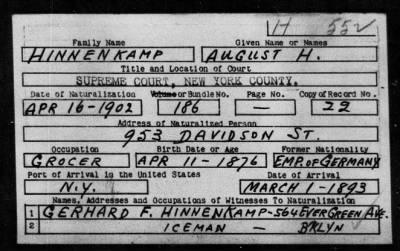 H 552
Family Name Given Name or Names
HINNENKAMP AUGUST H.
Title and Location of Court
SUPREME COURT, NEW YORK COUNTY.
Date of Naturalization Volume or Bundle No. Page No. Copy of Record No.
APR 16-1902 186 — 22
Address of Naturalized Person
953 DAVIDSON ST.
Occupation Birth Date or Age Former Nationality
GROCER APR 11-1876 EMP. OF GERMANY
Port of Arrival in the United States Date of Arrival
N.Y. MARCH 1-1893
Names, Addresses and Occupations of Witnesses To Naturalization
1 GERHARD F. HINNENKAMP-564 EVERGREEN AVE.
2 ICEMAN — BKLYN